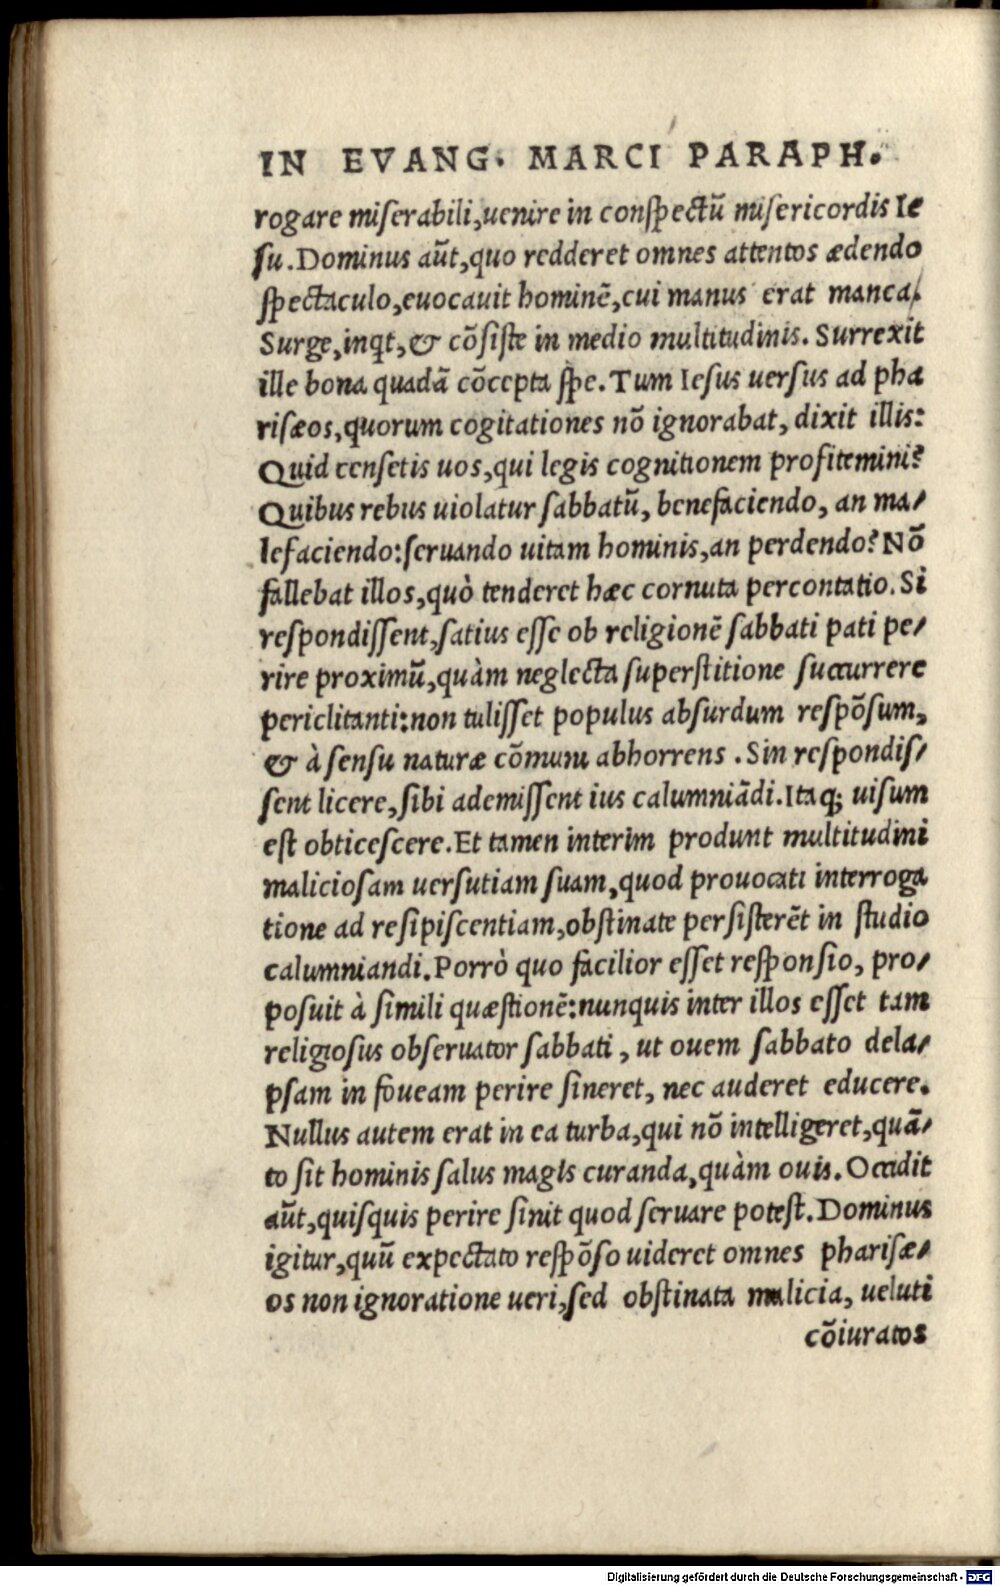 IN EVANG. MARCI PARAPH.
rogare miserabili,uenire in conspectũ misericordis Ie
su.Dominus aũt,quo redderet omnes attentos ædendo
spectaculo,euocauit hominẽ,cui manus erat manca.
Surge,inqt,& cõsiste in medio multitudinis. Surrexit
ille bona quadã cõcepta spe.Tum Iesus uersus ad pha
risæos,quorum cogitationes nõ ignorabat, dixit illis:
Quid censetis uos,qui legis cognitionem profitemini?
Quibus rebus uiolatur sabbatũ, benefaciendo, an ma-
lefaciendo:seruando uitam hominis,an perdendo? Nõ
fallebat illos,quò tenderet hæc cornuta percontatio. Si
respondissent,satius esse ob religionẽ sabbati pati pe-
rire proximũ,quàm neglecta superstitione succurrere
periclitanti:non tulisset populus absurdum respõsum,
& à sensu naturæ cõmuni abhorrens .Sin respondis-
sent licere,sibi ademissent ius calumniãdi.Itaq; uisum
est obticescere.Et tamen interim produnt multitudini
maliciosam uersutiam suam,quod prouocati interroga
tione ad resipiscentiam,obstinate persisterẽt in studio
calumniandi.Porrò quo facilior esset responsio, pro-
posuit à simili quæstionẽ:nunquis inter illos esset tam
religiosus obseruator sabbati , ut ouem sabbato dela-
psam in foueam perire sineret, nec auderet educere.
Nullus autem erat in ea turba,qui nõ intelligeret,quã-
to sit hominis salus magis curanda,quàm ouis. Occidit
aũt,quisquis perire sinit quod seruare potest.Dominus
igitur,quũ expectato respõso uideret omnes pharisæ-
os non ignoratione ueri,sed obstinata malicia, ueluti
cõiuratos
Digitalisierung gefördert durch die Deutsche Forschungsgemeinschaft - DFG